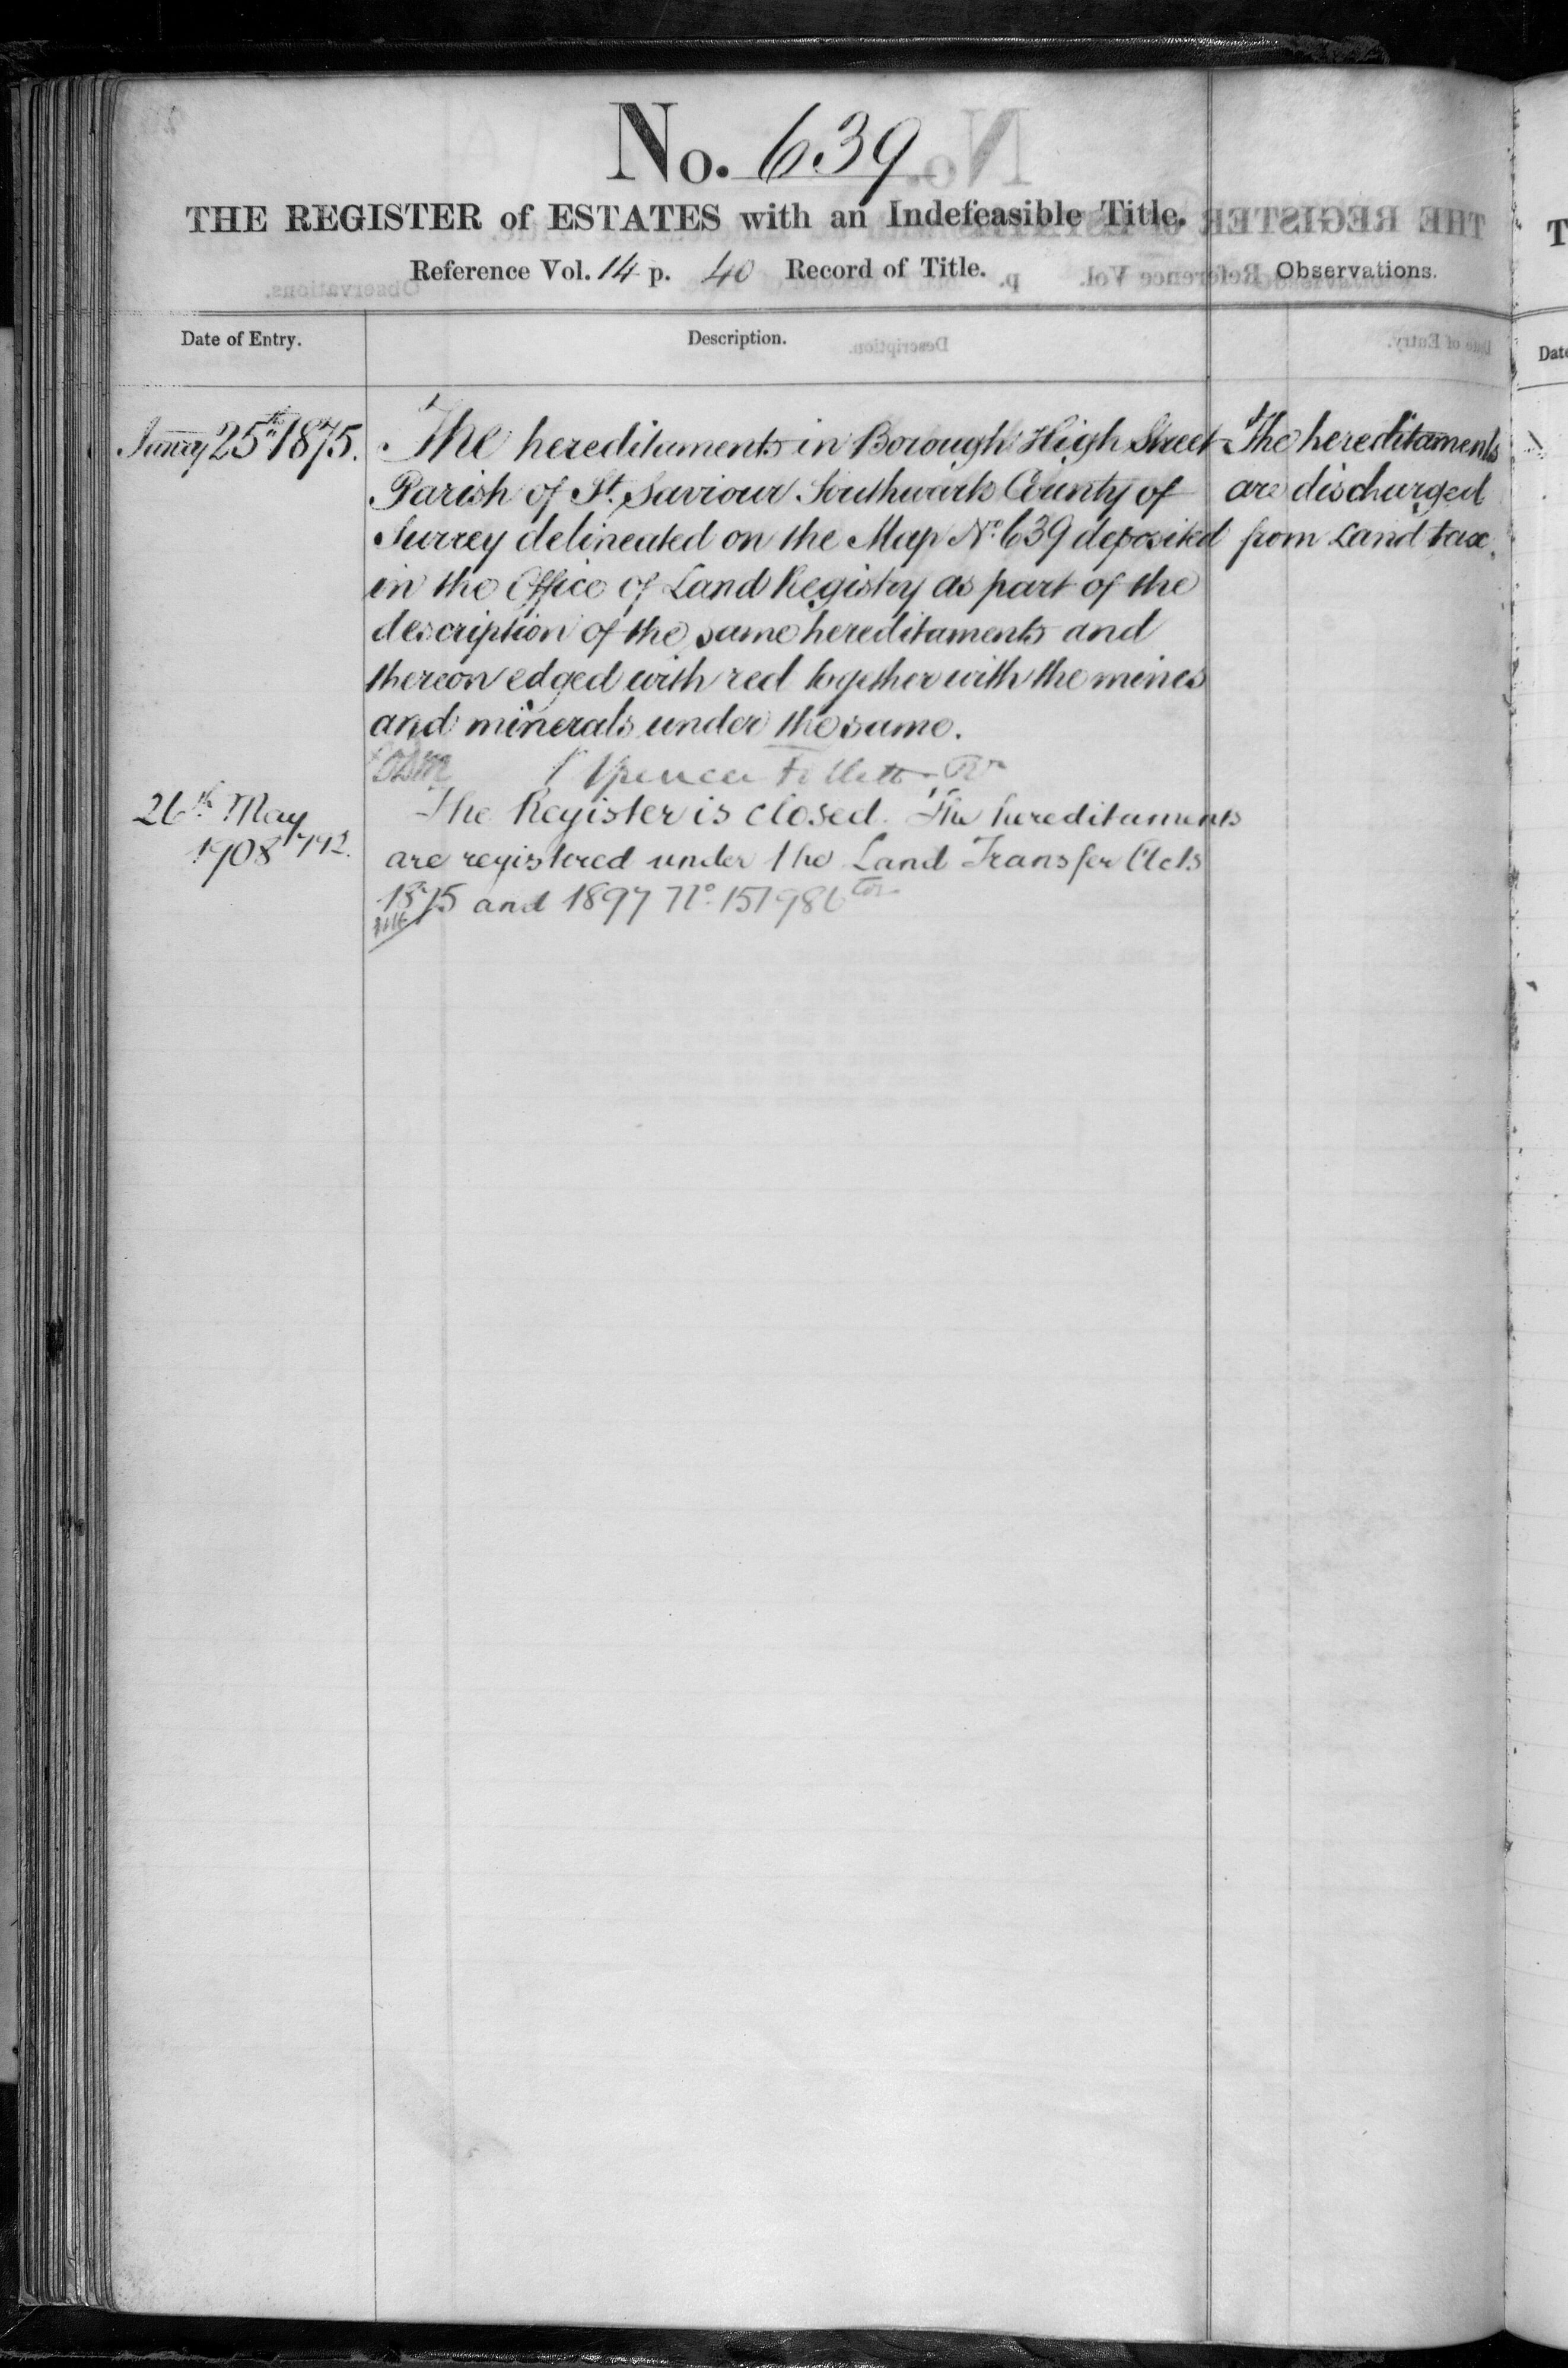 No. 639
THE REGISTER of ESTATES with an Indefeasible Title.
Reference Vol. 14 p. 40 Record of Title.
Observations.
Date of Entry.
Description.
January 25th 1875.
The hereditaments in Borough High Street
Parish of St. Saviour Southwark County of
Surrey delineated on the Map No. 639 deposited
in the Office of Land Registry as part of the
description of the same hereditaments and
thereon edged with red together with the mines
and minerals under the same.
Spencer Follett Rr
The hereditaments
are discharged
from Land tax.
26th May
1908
The Register is closed. The hereditaments
are registered under the Land Transfer Acts
1875 and 1897 No. 151986